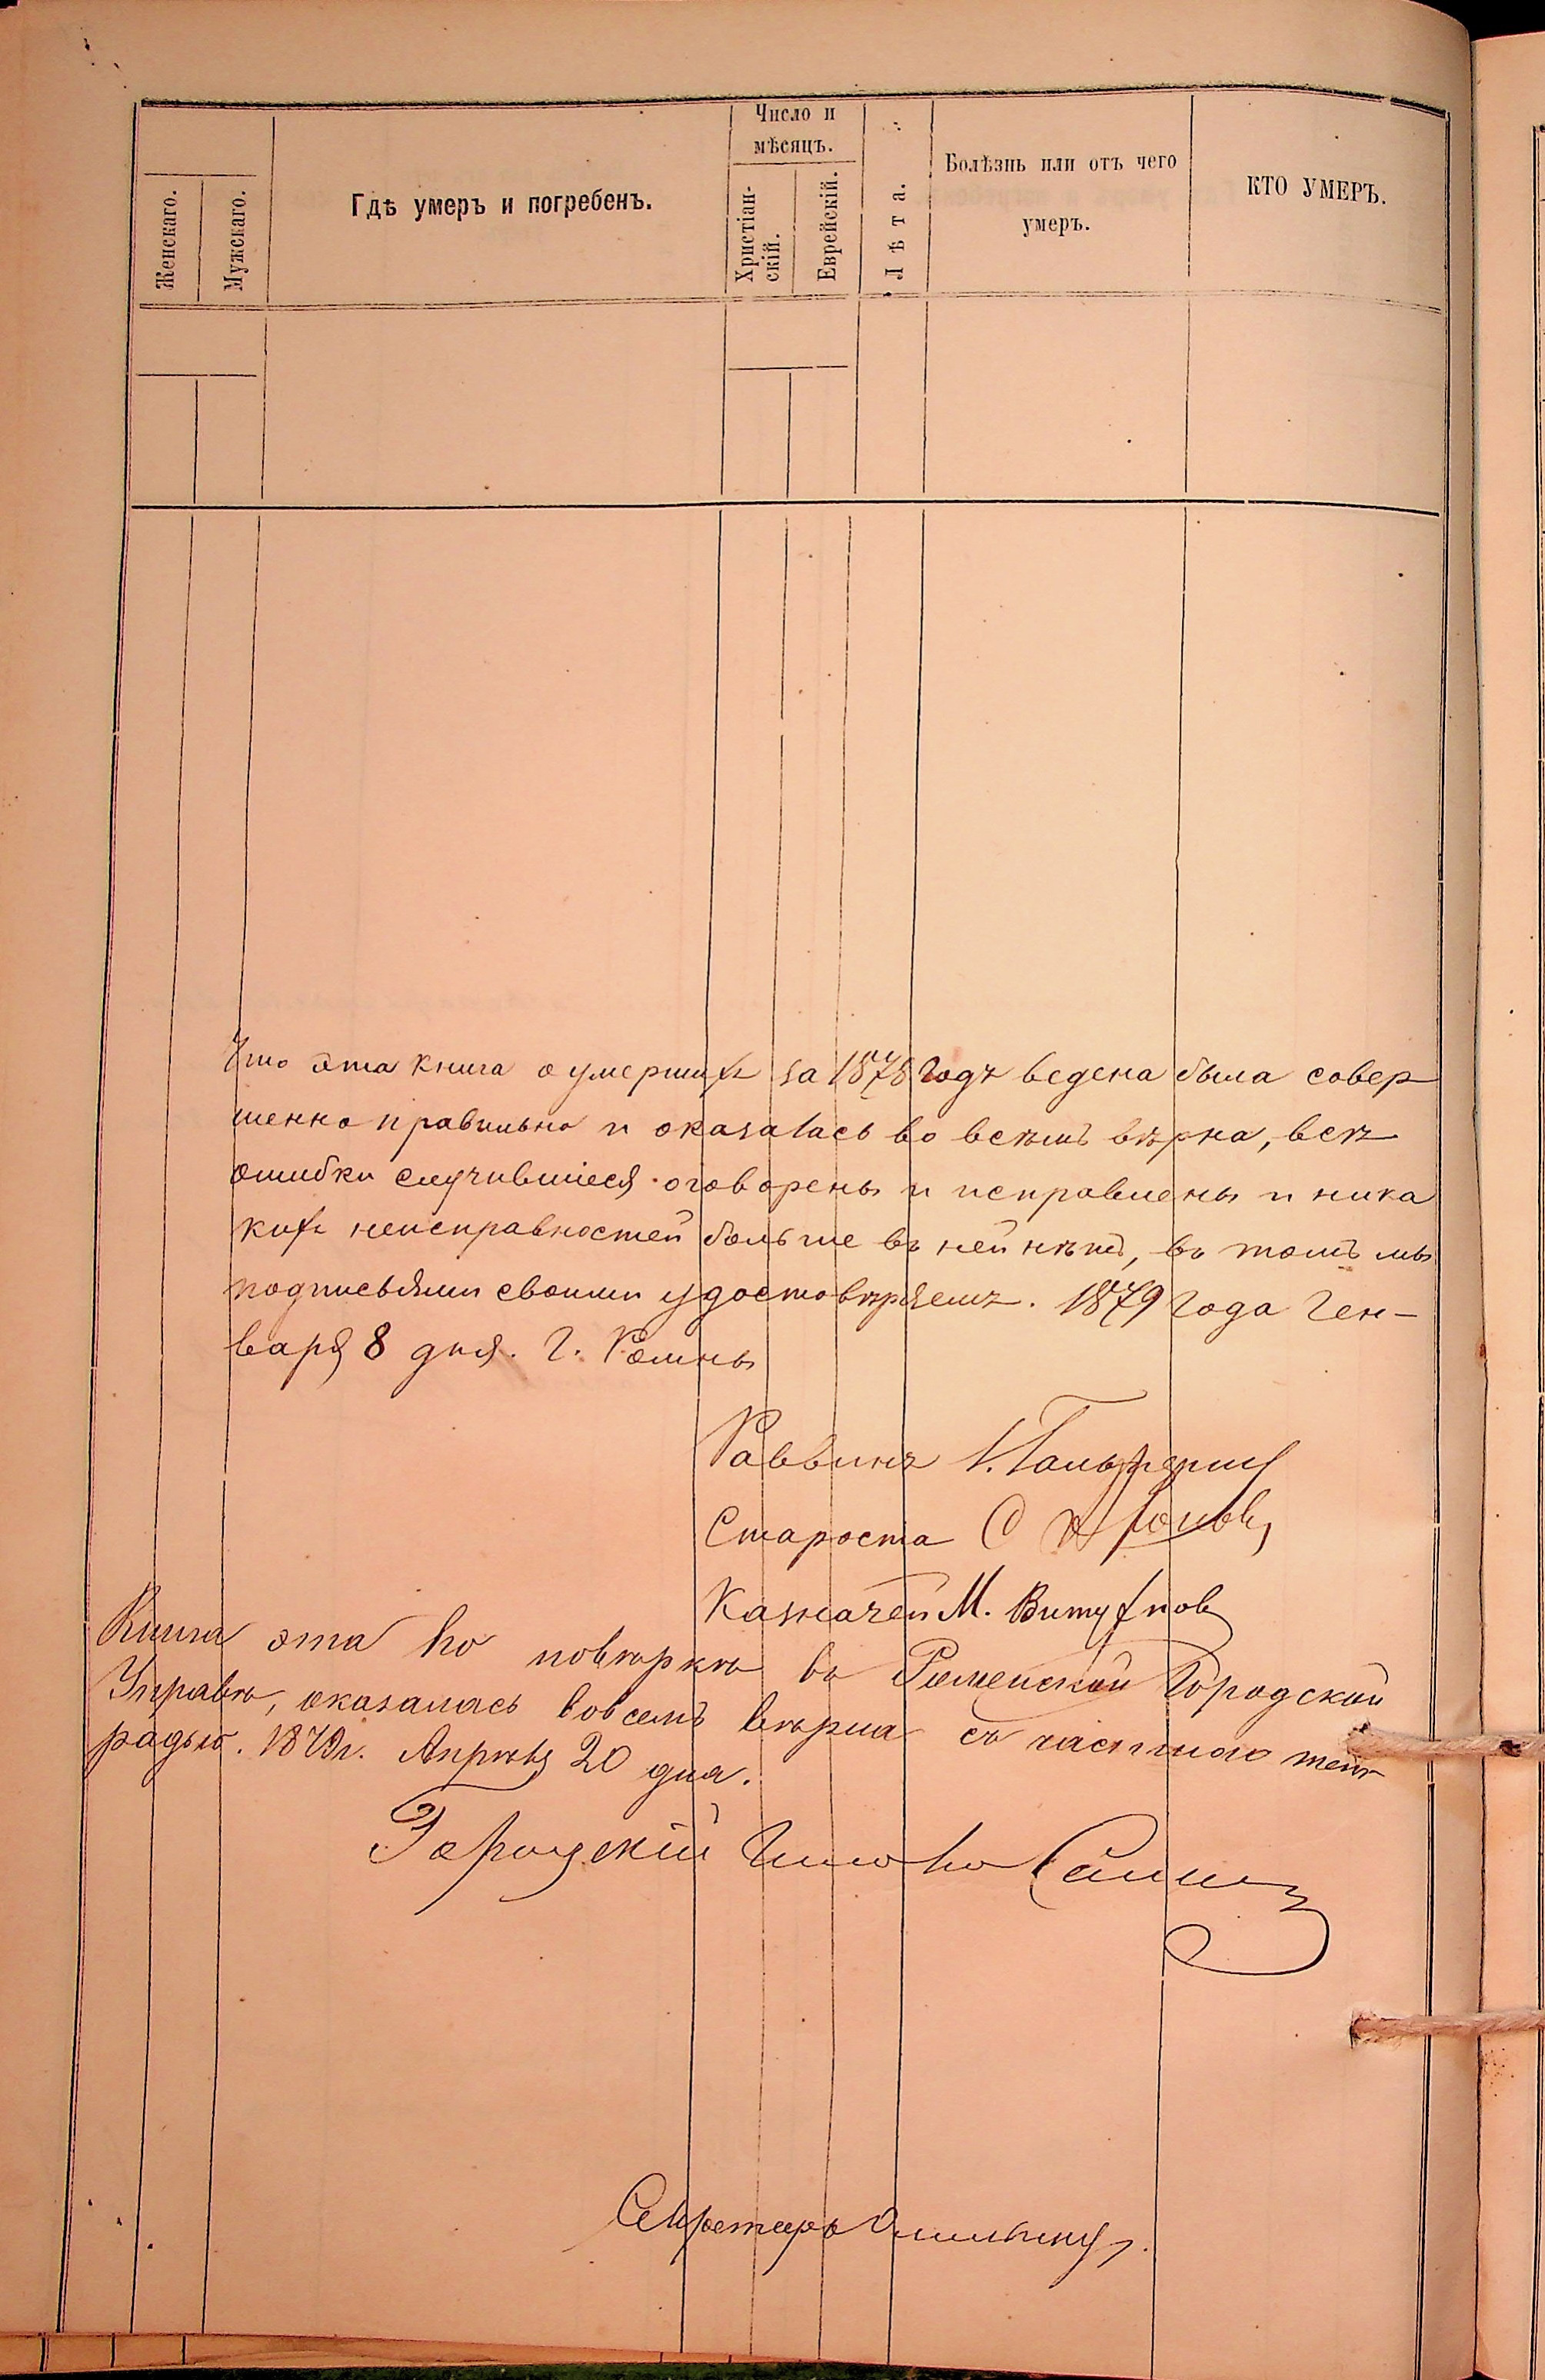 Число и
мѣсяцъ.
Женскаго.
Мужскаго.
Гдѣ умеръ и погребенъ.
Христіан-
скій.
Еврейскій.
Лѣта.
Болѣзнь или отъ чего
умеръ.
КТО УМЕРЪ.
Что эта книга о умершихъ за 1878 годъ ведена была совер
шенно правильно и оказалась во всѣмъ вѣрна, всѣ
ошибки случившіеся оговорены и исправлены и ника
кихъ неисправностей больше въ ней нѣтъ, въ томъ мы
подписьями своими удостовѣряемъ. 1879 года Ген-
варя 8 дня. Г. Ромны
Раввинъ
Староста
Казначей М.
Книга эта по повѣркѣ въ Роменской Городской
Управѣ, оказалась вовсемъ вѣрна съ частною тет
радью. 1879г. Апрѣля 20 дня.
Городскій
Секретарь